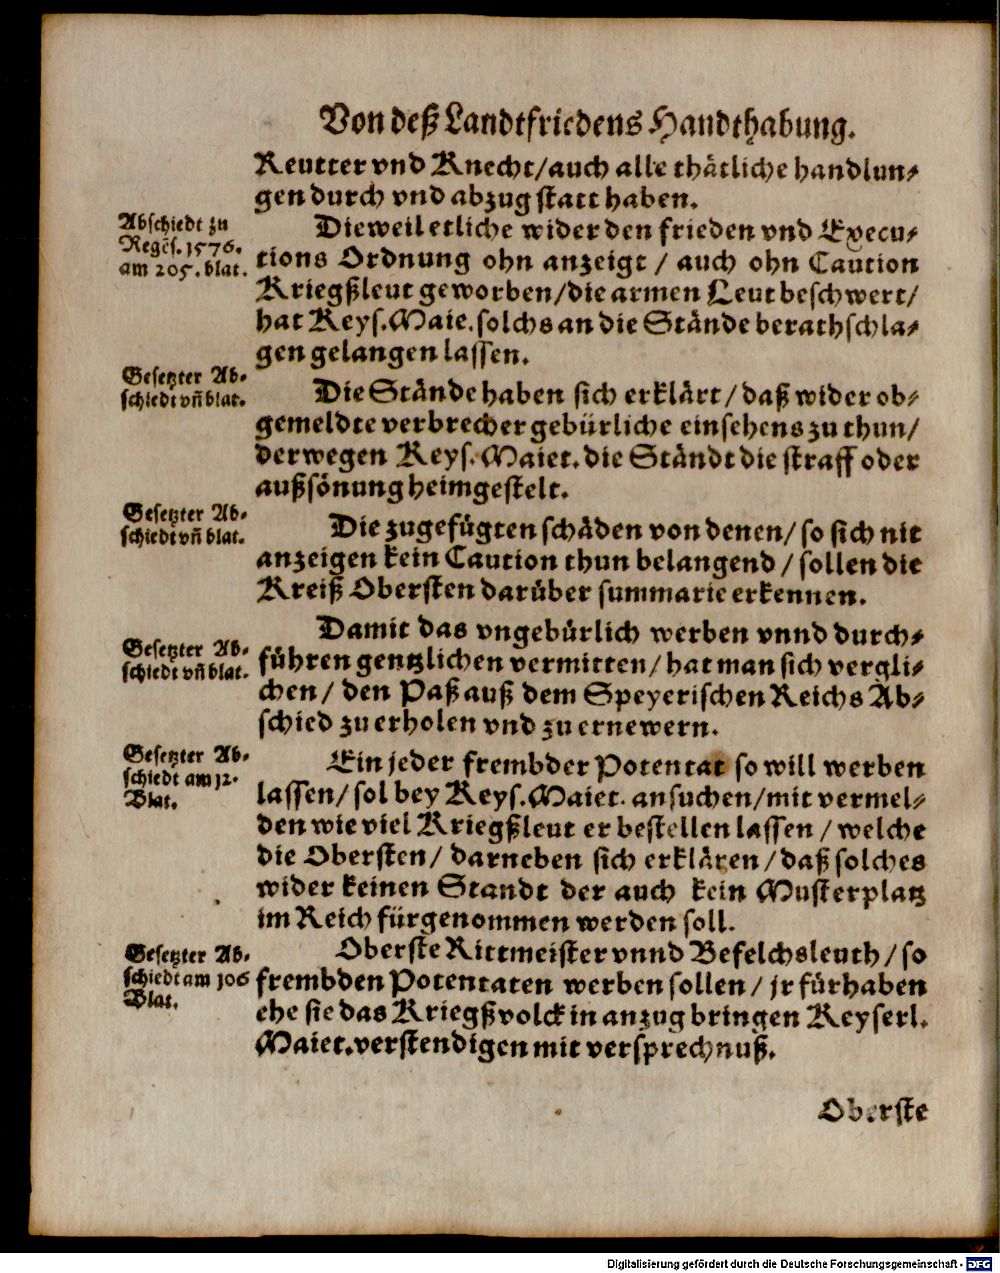 Von deß Landtfriedens Handthabung.
Reutter vnd Knecht/auch alle thätliche handlun⸗
gen durch vnd abzug statt haben.
Abschiedt zu
Regēs. 1576.
am 205. blat.
Dieweil etliche wider den frieden vnd Execu⸗
tions Ordnung ohn anzeigt / auch ohn Caution
Kriegßleut geworben/die armen Leut beschwert/
hat Keys. Maie. solchs an die Stände berathschla⸗
gen gelangen lassen.
Gesetzter Ab⸗
schiedt vñ blat.
Die Stände haben sich erklärt / daß wider ob⸗
gemeldte verbrecher gebürliche einsehens zu thun/
derwegen Keys. Maiet. die Ständt die straff oder
außsönung heimgestelt.
Gesetzter Ab⸗
schiedt vñ blat.
Die zugefügten schäden von denen/ so sich nit
anzeigen kein Caution thun belangend / sollen die
Kreiß Obersten darüber summarie erkennen.
Gesetzter Ab⸗
schiedt vñ blat.
Damit das vngebürlich werben vnnd durch⸗
führen gentzlichen vermitten/ hat man sich vergli⸗
chen/ den Paß auß dem Speyerischen Reichs Ab⸗
schied zu erholen vnd zu ernewern.
Gesetzter Ab⸗
schiedt am 12.
Blat.
Ein jeder frembder Potentat so will werben
lassen/ sol bey Keys. Maiet. ansuchen/mit vermel⸗
den wie viel Kriegßleut er bestellen lassen / welche
die Obersten/ darneben sich erklären / daß solches
wider keinen Standt der auch kein Musterplatz
im Reich fürgenommen werden soll.
Gesetzter Ab⸗
schiedt am 106
Blat.
Oberste Rittmeister vnnd Befelchsleuth / so
frembden Potentaten werben sollen/ jr fürhaben
ehe sie das Kriegßvolck in anzug bringen Keyserl.
Maiet. verstendigen mit versprechnuß.
Oberste
Digitalisierung gefördert durch die Deutsche Forschungsgemeinschaft - DFG